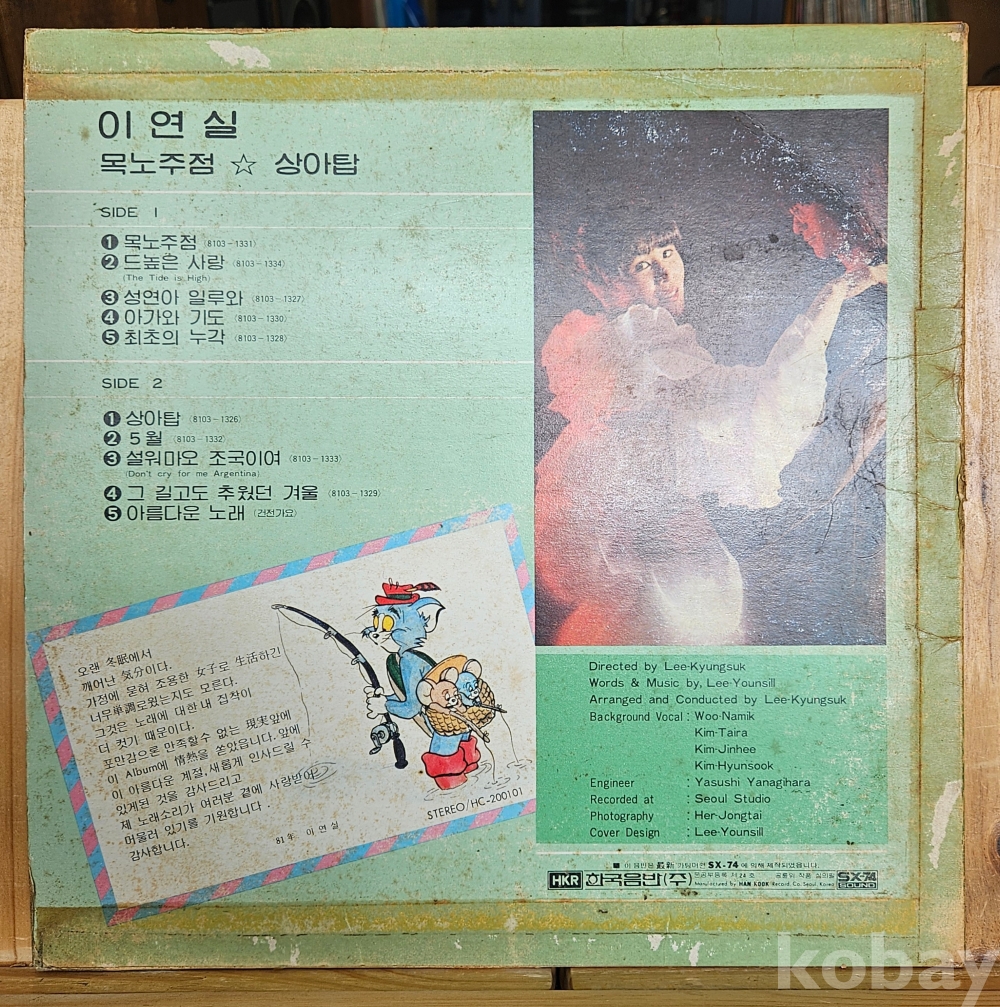 이연실
목노주점 ☆ 상아탑
SIDE 1
❶ 목노주점 (8103-1331)
❷ 드높은 사랑 (8103-1334)
(The Tide is High)
❸ 성연아 일루와 (8103-1327)
❹ 아가와 기도 (8103-1330)
❺ 최초의 누각 (8103-1328)
SIDE 2
❶ 상아탑 (8103-1326)
❷ 5월 (8103-1332)
❸ 설워마오 조국이여 (8103-1333)
(Don't cry for me Argentina)
❹ 그 길고도 추웠던 겨울 (8103-1329)
❺ 아름다운 노래 (건전가요)
오랜 冬眠에서
깨어난 気分이다.
가정에 묻혀 조용한 女子로 生活하긴
너무 単調로웠는지도 모른다.
그것은 노래에 대한 내 집착이
더 컷기 때문이다.
포만감으론 만족할수 없는 現実앞에
이 Album에 情熱을 쏟았읍니다. 앞에
이 아름다운 계절, 새롭게 인사드릴 수
있게된 것을 감사드리고
제 노래소리가 여러분 곁에 사랑받아
머물러 있기를 기원합니다.
감사합니다.
81年 이연실
STEREO/HC-200101
Directed by Lee-Kyungsuk
Words & Music by, Lee-Younsill
Arranged and Conducted by Lee-Kyungsuk
Background Vocal : Woo-Namik
Kim-Taira
Kim-Jinhee
Kim-Hyunsook
Engineer : Yasushi Yanagihara
Recorded at : Seoul Studio
Photography : Her-Jongtai
Cover Design : Lee-Younsill
■ 이 음반은 最新 카팅머쉰 SX-74 에 의해 제작되었읍니다.
HKR 한국음반(주) 문공부등록 제24호 공륜위 작품 심의필 SX-74
Manufactured by HAN KOOK Record. Co. Seoul. Korea SOUND
kobay